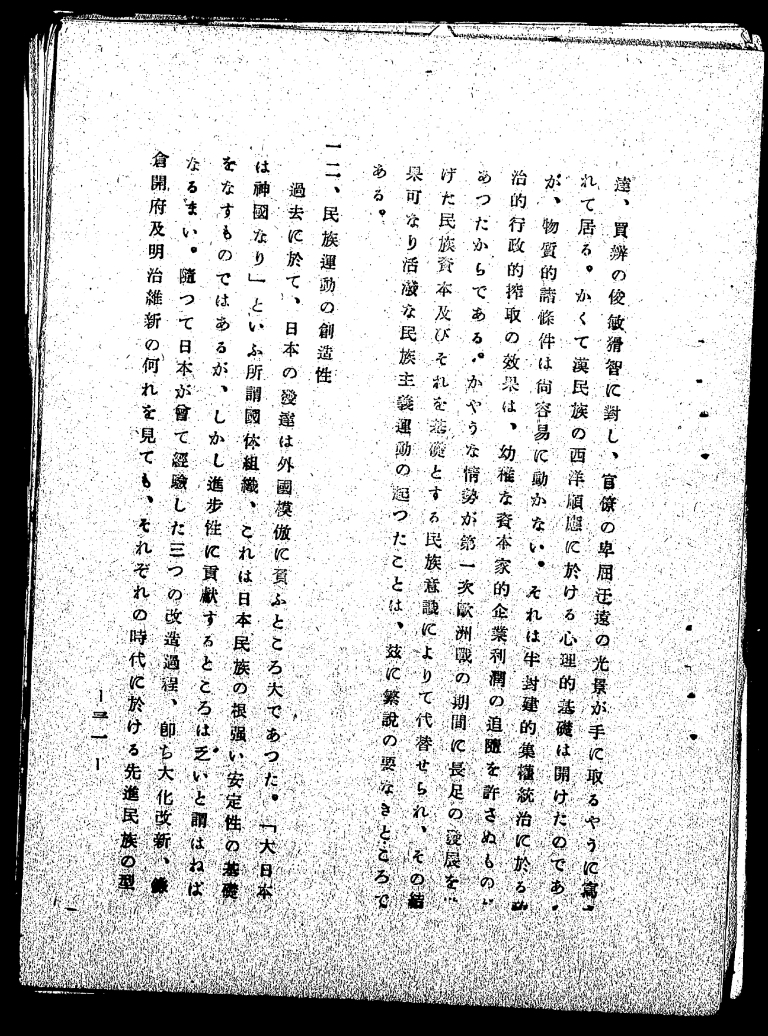 達、買辨の俊敏猾智に對し、官僚の卑屈迂遠の光景が手に取るやうに寫
れて居る。かくて漢民族の西洋順應に於ける心理的基礎は開けたのであ
が、物質的諸條件は尙容易に動かない。それは半封建的集權統治に於る
治的行政的搾取の效果は、幼稚な資本家的企業利潤の追隨を許さぬもの
あつたからである。かやうな情勢が第一次歐洲戰の期間に長足の發展を
げた民族資本及びそれを基礎とする民族意識によりて代替せられ、その結
果可なり活潑な民族主義運動の起つたことは、玆に繁說の要なきところで
ある。
一二、民族運動の創造性
過去に於て、日本の發達は外國模倣に負ふところ大であつた。「大日本
は神國なり」といふ所謂國体組織、これは日本民族の根强い安定性の基礎
をなすものではあるが、しかし進步性に貢獻するところは乏いと謂はねば
なるまい。隨つて日本が曾て經驗した三つの改造過程、卽ち大化改新、鎌
倉開府及明治維新の何れを見ても、それぞれの時代に於ける先進民族の型